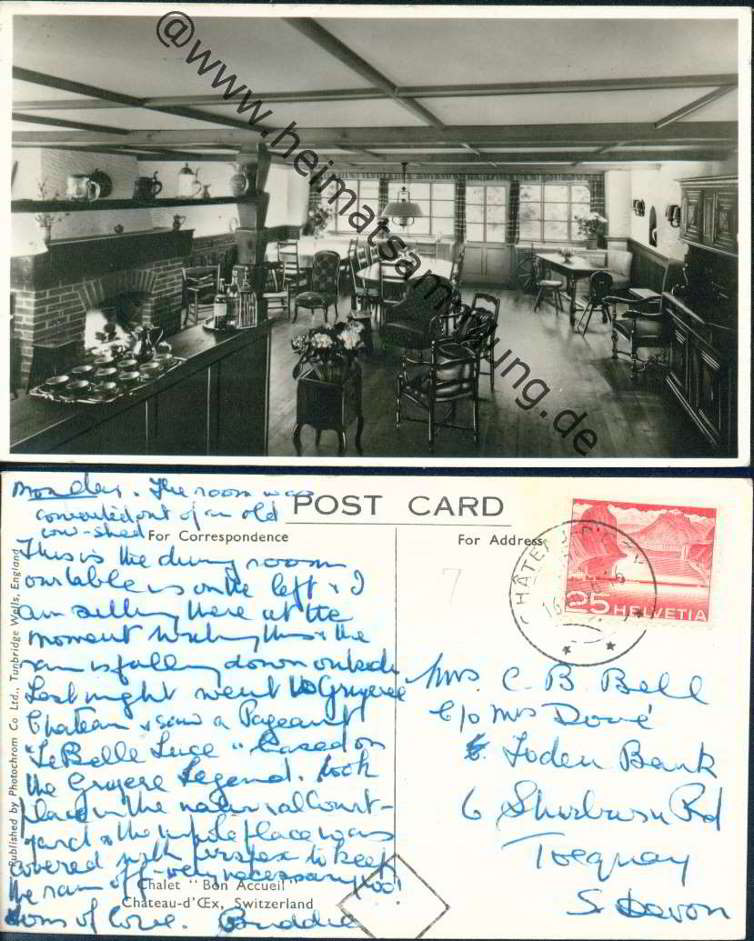 @www.heimatsammlung.de
POST CARD
For Correspondence
For Address
Monday. The room was
converted out of an old
cow-shed
This is the dining room
our table is on the left & I
am sitting there at the
moment writing this & the
rain is falling down outside
Last night went to Gruyere
Chateau & saw a Pageant
"Le Belle Luce" based on
the Gruyere Legend. took
place in the natural Court-
yard & the whole place was
covered with perspex to keep
the rain off - very necessary too!
tons of love. Buddie
Chalet "Bon Accueil"
Château-d'Œx, Switzerland
Published by Photochrom Co Ltd., Tunbridge Wells, England
7
CHÂTEAU
16
25 HELVETIA
Mrs C. B. Bell
c/o Mrs Dové
Loden Bank
6 Sherburn Rd
Torquay
S. Devon